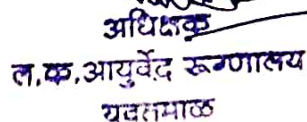 अधिक्षक
ल.क.आयुर्वेद रूग्णालय
यवतमाळ